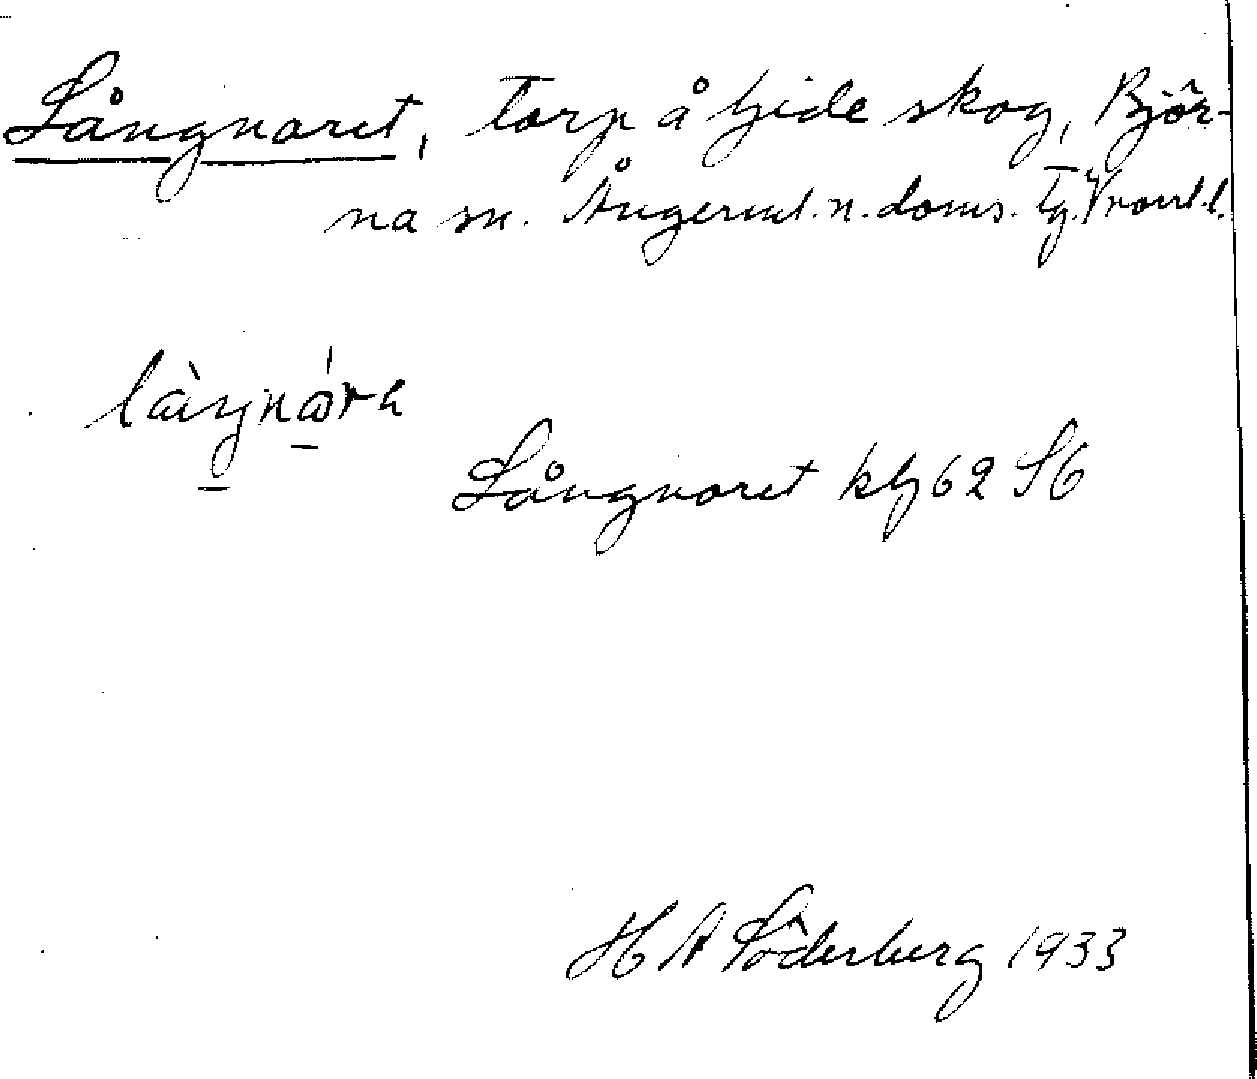 Långnoret, Torp å Gide skog, Björ-
na sn. Ångerml. n. doms. Tg. Vrnl. l.
Långnoret kbl 62 S6
H A Söderberg 1933